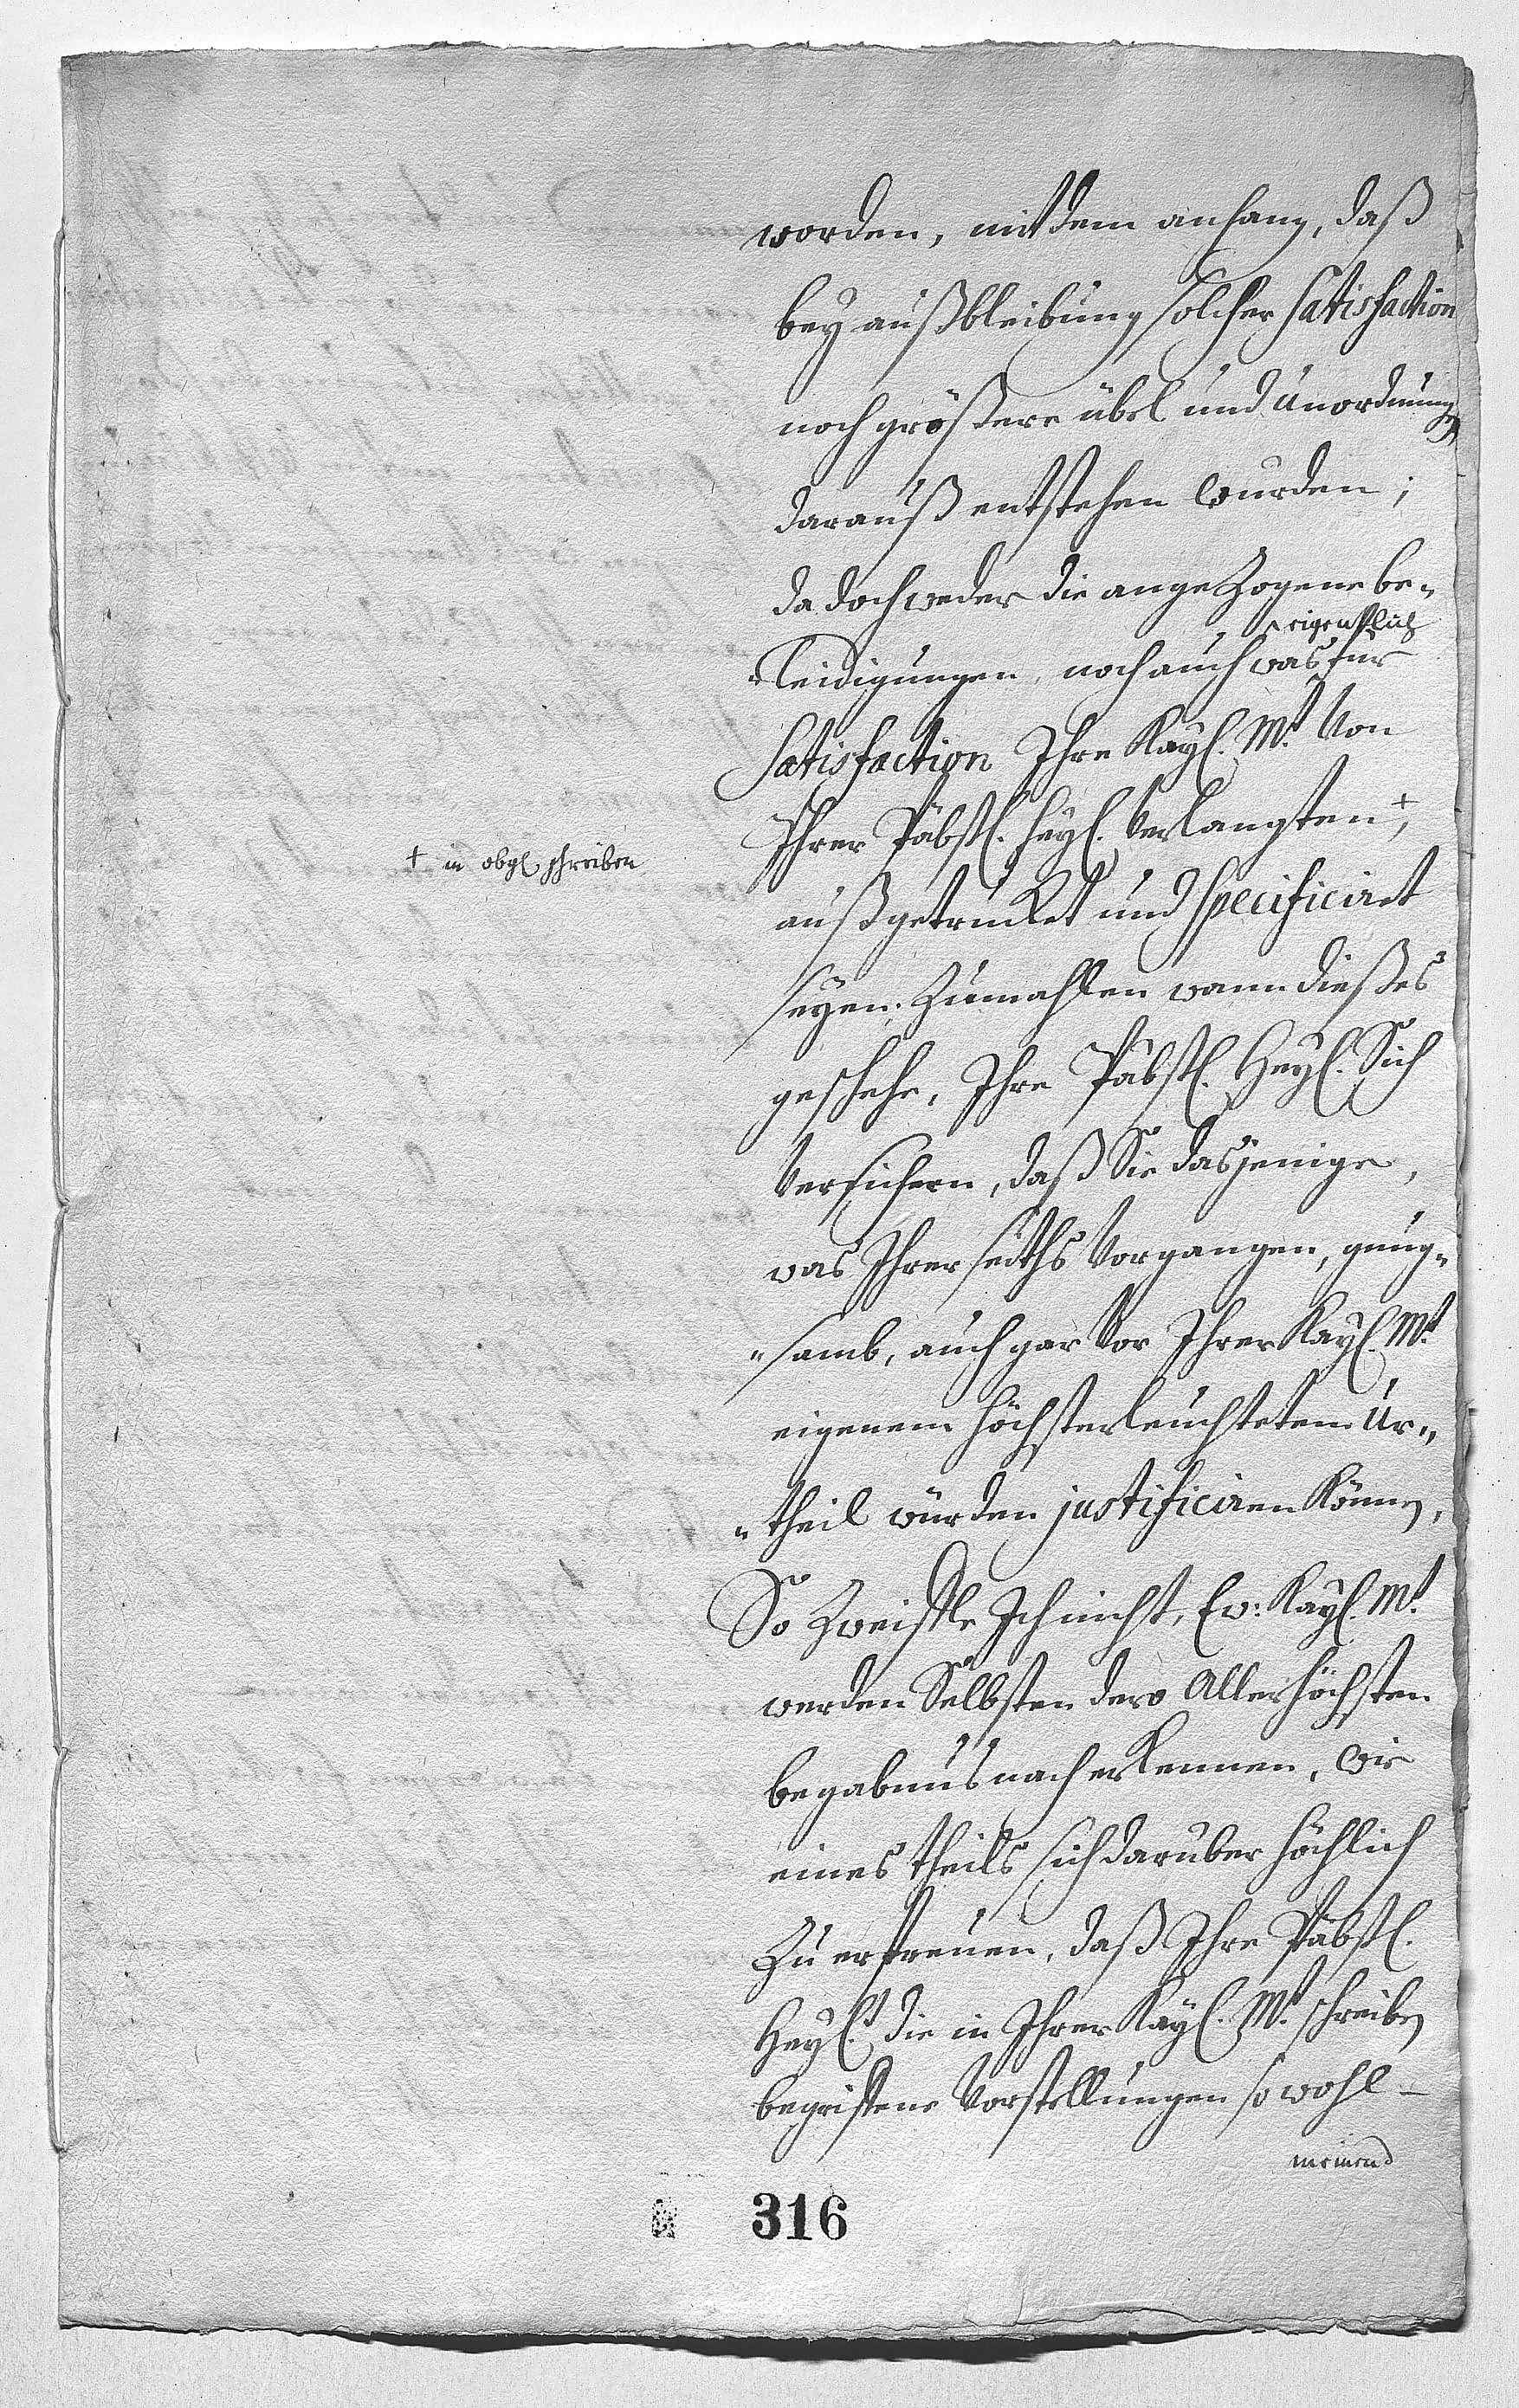 worden, mit dem anhang, daß
bey außbleibung solcher Satisfaction
noch größere übel und Unordnungen
darauß entstehen wurden;
da doch weder die angezogene be-
eigentlich
leidigungen, noch auch was für
Satisfaction Ihre Kayl. Mt. von
Ihrer Päbstl. Heyl. verlangten †,
† in obgl schreiben
außgetruket und specificiret
seyen: Zumahlen wann dießes
geschehe, Ihre Päbstl. Heyl. Sich
versichern, daß Sie dasjenige,
was Ihrer seiths vorgangen, gnug-
samb, auch gar vor Ihrer Kayl. Mt.
eigenem höchsterleuchtetem Ur-
theil würden justificiren können,
So Zweifle Ich nicht, Ew: Kayl. Mt.
werden Selbsten dero Allerhöchsten
begabnus nach erkennen, wie
eines theils sich daruber höchlich
Zu erfreuen, daß Ihre Päbstl.
Heyl.t die in Ihrer Kayl. Mt. schreiben
begriffene Vorstellungen so wohl-
meinend
316